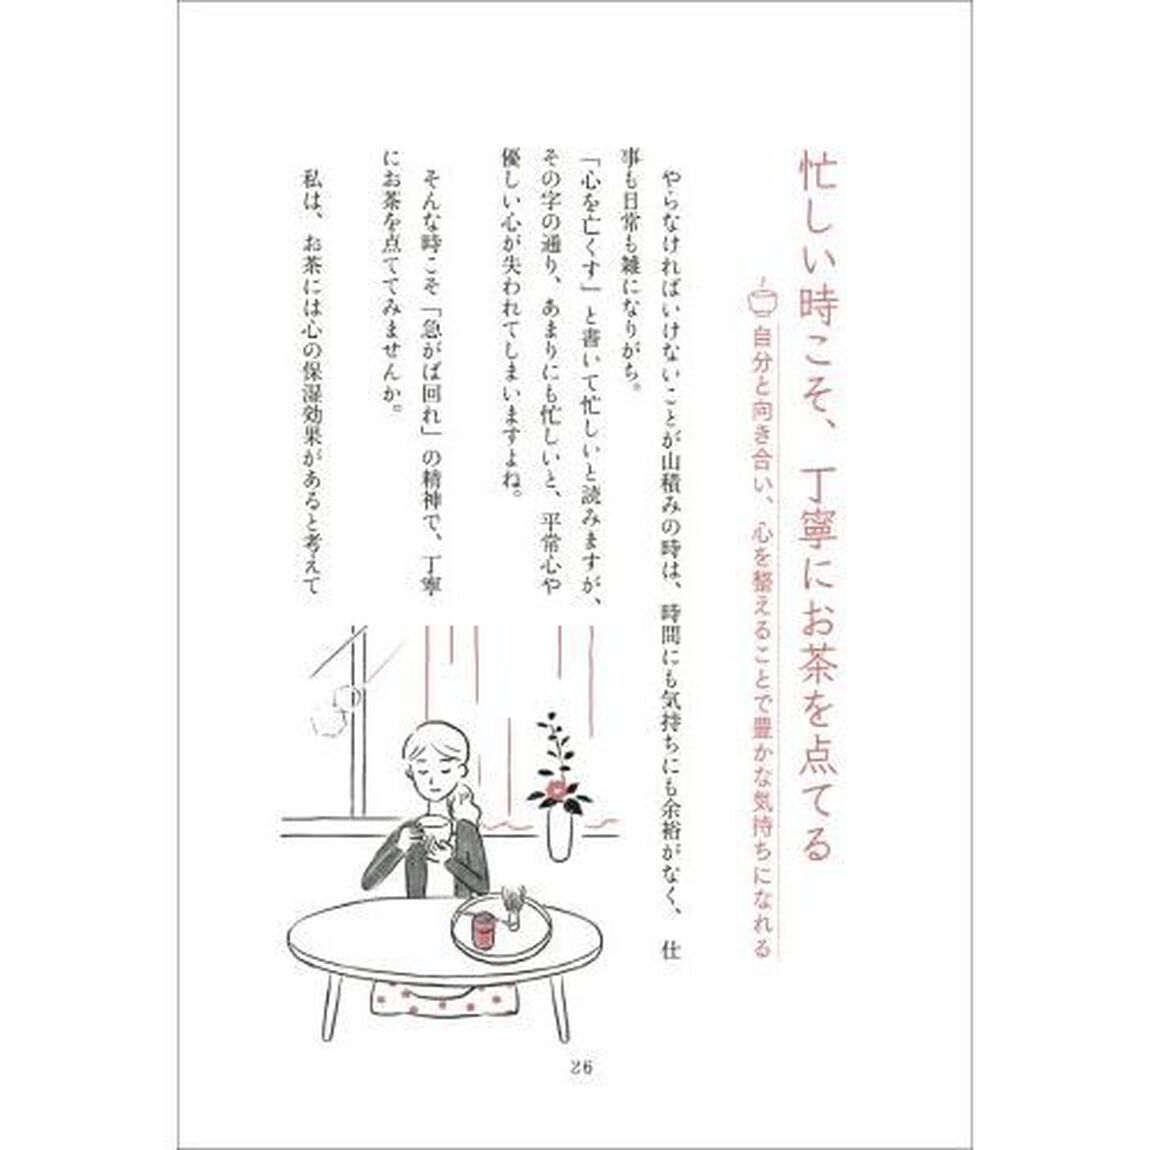 忙しい時こそ、丁寧にお茶を点てる
自分と向き合い、心を整えることで豊かな気持ちになれる
やらなければいけないことが山積みの時は、時間にも気持ちにも余裕がなく、仕
事も日常も雑になりがち。
「心を亡くす」と書いて忙しいと読みますが、
その字の通り、あまりにも忙しいと、平常心や
優しい心が失われてしまいますよね。
そんな時こそ「急がば回れ」の精神で、丁寧
にお茶を点ててみませんか。
私は、お茶には心の保湿効果があると考えて
26